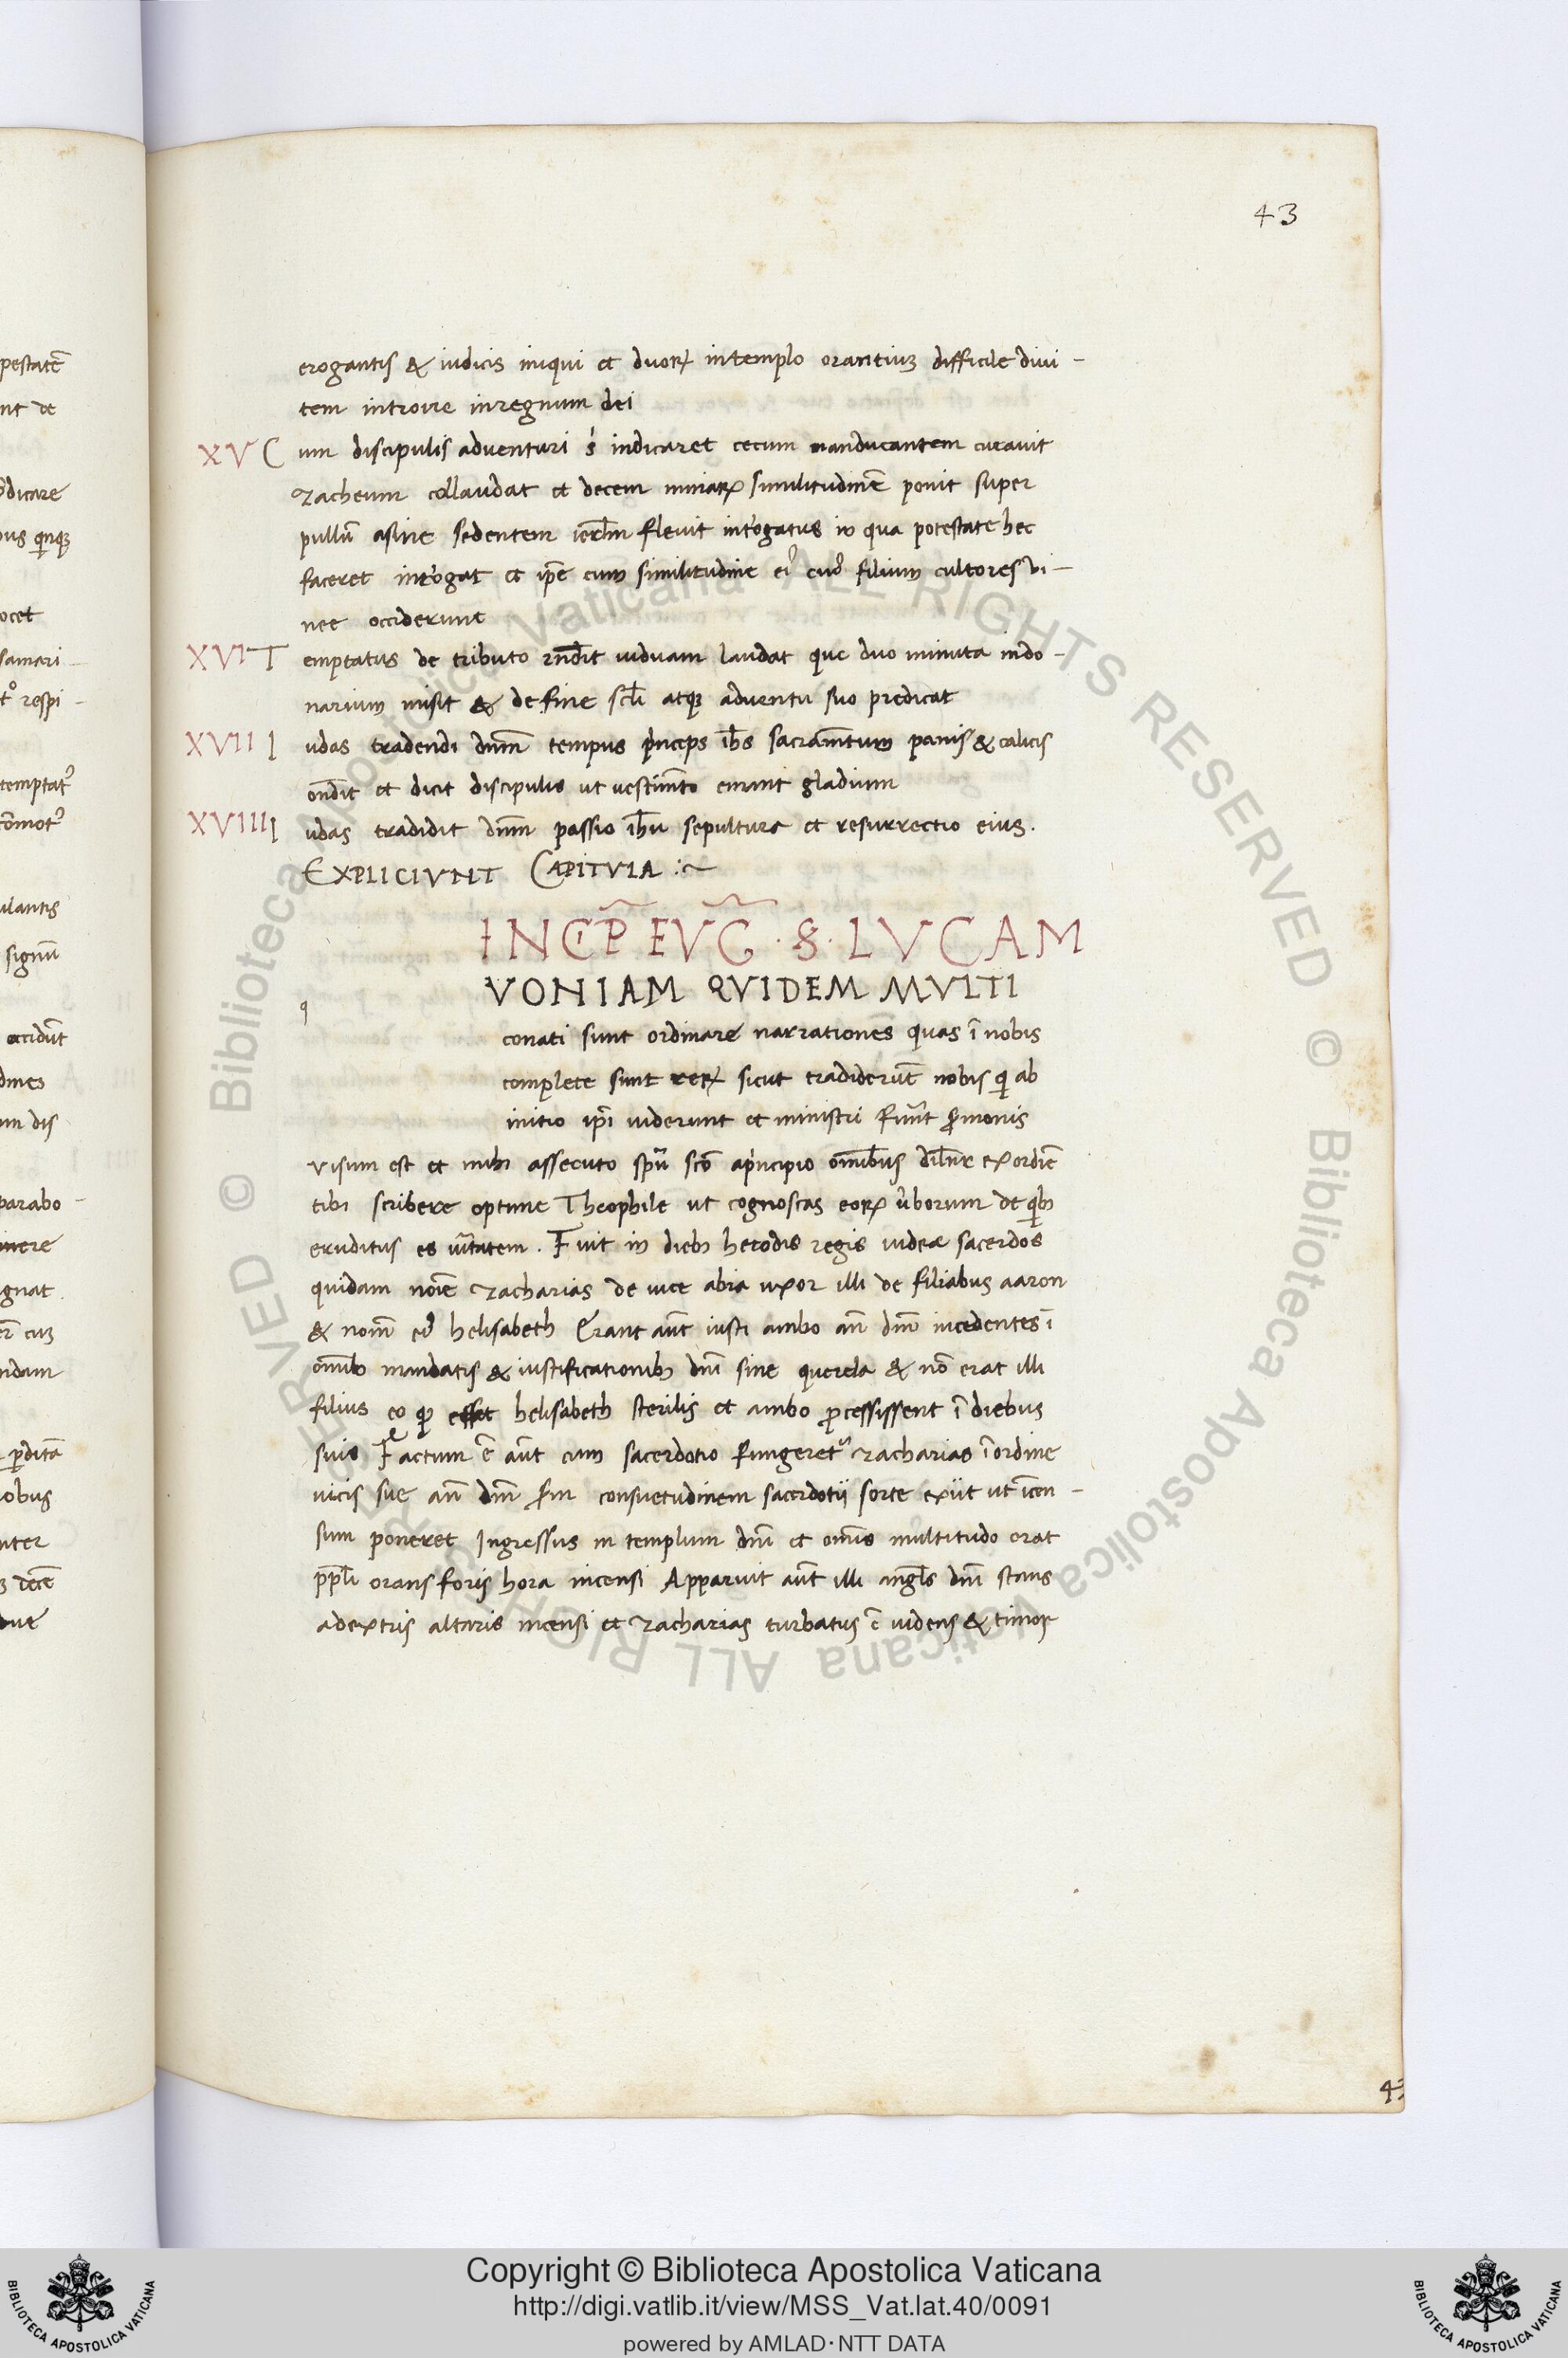 43
erogantis & iudicis iniqui et duoꝝ in templo orantium difficile diui-
tem introire in regnum dei
XV Cum discipulis adventuri s̓ indicaret cecum manducantem curauit
zacheum collaudat et decem mnaꝝ similitudinē ponit super
pullū asine sedentem ierl̄m fleuit int̓ogatus in qua potestate hec
faceret int̓ogat et ip̄e cum similitudine ei᾽ cui᾽ filium cultores vi-
nee occiderunt
XVI Temptatus de tributo rn̄dit uiduam laudat que duo minuta in do-
narium misit & de fine scl̄i atqꝫ aduentu suo predicat
XVII Iudas tradendi dnm̄ tempus pͥnceps ih̄s sacram̄tum panis & calicis
on̄dit et dicit discipulis ut uestim̄to emint gladium
XVIIII Iudas tradidit dn̄m passio ih̄u sepultura et resurrectio eius.
EXPLICIVNT CAPITVLA :~
INCIP̄ EVG̅ · S · LVCAM
q VONIAM QVIDEM MVLTI
conati sunt ordinare narrationes quas ī nobis
complete sunt reꝝ sicut tradiderūt nobis qͥ ab
initio ip̄i uiderunt et ministri fuer̄t s̄monis
visum est et mihi assecuto spū scō a pͥncipio omībus dil̄nr ex ordiē
tibi scribere optime Theophile ut cognoscas eoꝝ u̓borum de qͥbꝫ
eruditus es uı̄tatem. Fuit in diebꝫ herodis regis iudeæ sacerdos
quidam noīe zacharias de uice abia uxor illi de filiabus aaron
& nom̄ ei᾽ helisabeth Erant aūt iusti ambo an̄ dm̄ incedentes ī
omībꝫ mandatis & iustificationibꝫ dn̄i sine querela & nō erat illi
filius eo qꝫ esset helisabeth sterilis et ambo ꝓcessissent ī diebus
suis Factum ē aūt cum sacerdotio fungeret᾽ zacharias ī ordine
uicis sue an̄ dm̄ s̄m consuetudinem sacerdotii sorte exiit ut īcen-
sum poneret Ingressus in templum dn̄i et omīs multitudo erat
ppl̄i orans foris hora incensi Apparuit aūt illi angl̄s dn̄i stans
a dextris altaris incensi et zacharias turbatus ē uidens & timor
43
Copyright © Biblioteca Apostolica Vaticana
http://digi.vatlib.it/view/MSS_Vat.lat.40/0091
powered by AMLAD·NTT DATA
BIBLIOTECA APOSTOLICA VATICANA
BIBLIOTECA APOSTOLICA VATICANA
© Biblioteca Apostolica Vaticana ALL RIGHTS RESERVED © Biblioteca Apostolica Vaticana ALL RIGHTS RESERVED